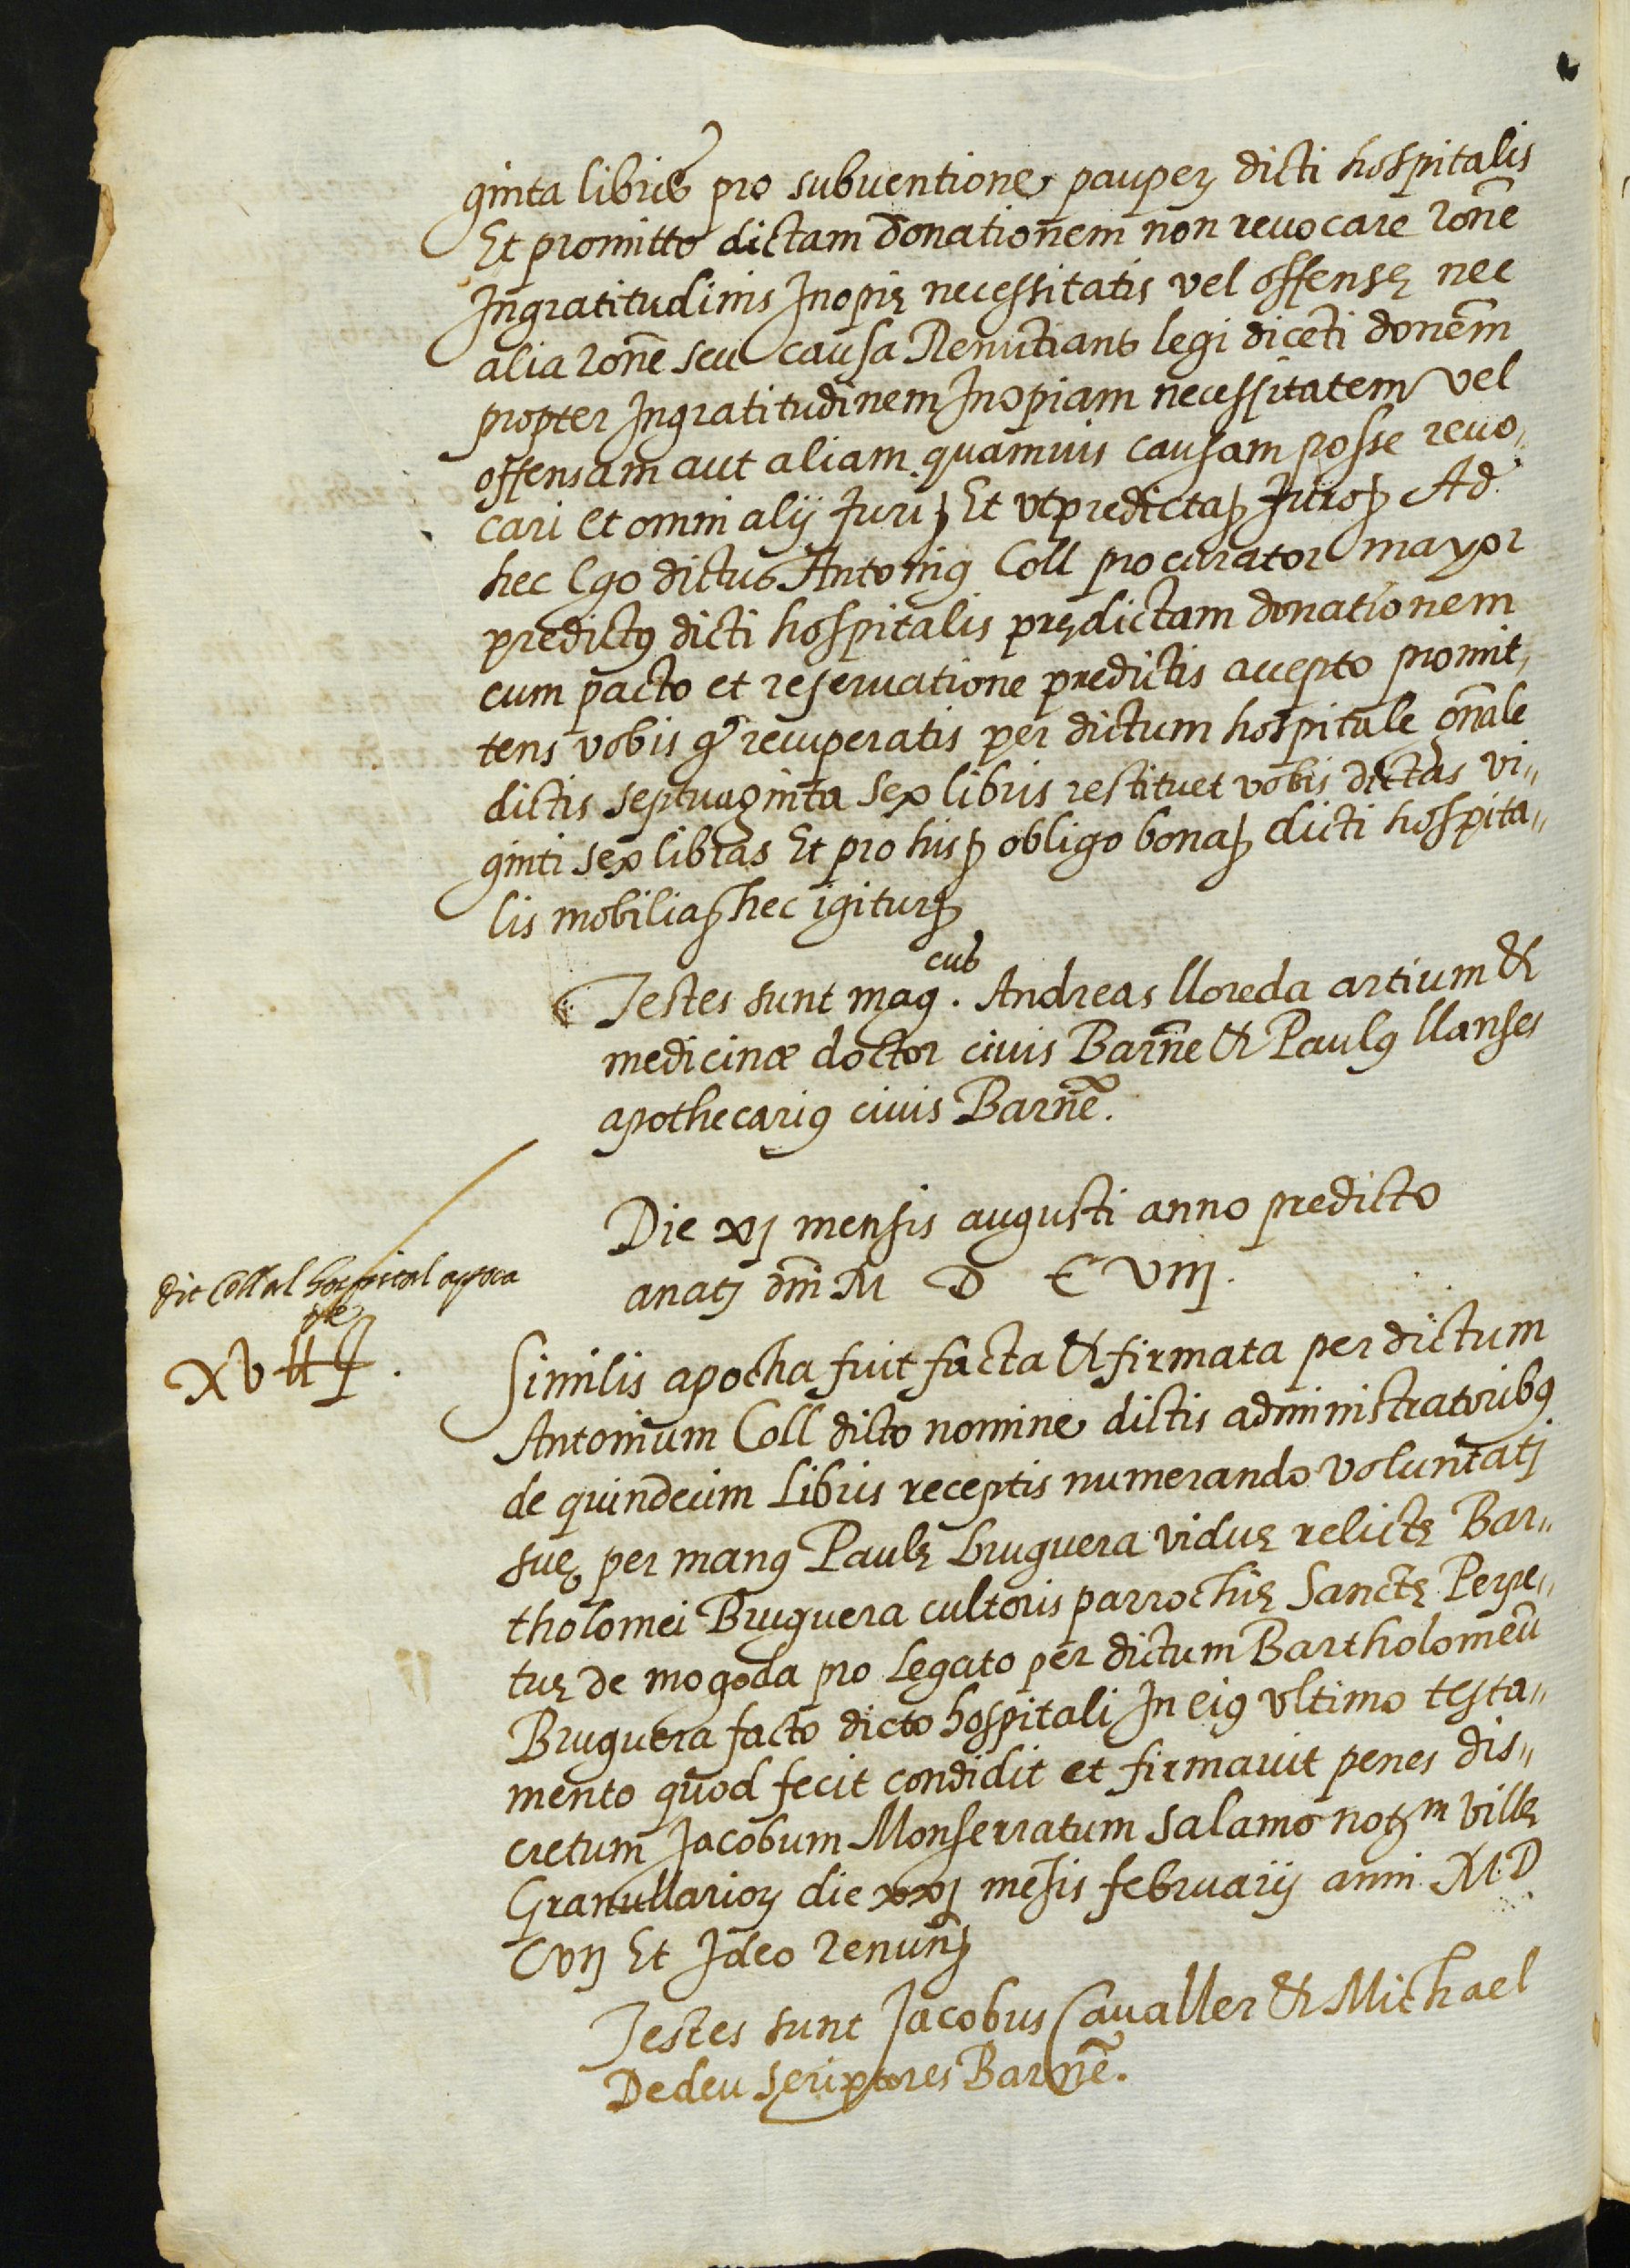 ginta libris pro subventione pauperꝝ dicti hospitalis
Et promitto dictam donationem non revocare rõne
Ingratitudinis Inopię necessitatis vel offensę nec
alia rõne seu causa Renũtians legi dicẽti donẽm
propter Ingratitudinem Inopiam necessitatem vel
offensam aut aliam quamvis causam posse revo„
cari et omni alij Juriꝫ Et vt predictaꝫ Juroꝫ Ad
hec Ego dictus Antoniꝰ Coll procurator mayor
predictꝰ dicti hospitalis prędictam donationem
cum pacto et reservatione predictis accepto promit„
tens vobis qͬ recuperatis per dictum hospitale gñale
dictis septuaginta sex libris restituet vobis dictas vi„
ginti sex libras Et pro hisꝫ obligo bonaꝫ dicti hospita„
lis mobiliaꝫ hec igiturꝫ
Testes sunt mag.cus Andreas lloreda artium &
medicinæ doctor civis Barñe & Paulꝰ llanses
apothecariꝰ civis Barñe.
Die xj mensis augusti anno predicto
anatꝫ dñi M D C VIIJ.
dit Coll al hospital apoca
de
XV ₶ .
Similis apocha fuit facta & firmata per dictum
Antonium Coll dicto nomine dictis administratoribꝰ
de quindecim libris receptis numerando voluntatꝫ
suę per manꝰ Paulę Bruguera viduę relictę Bar„
tholomei Bruguera cultoris parrochię Sanctę Perpe„
tuę de mogoda pro legato per dictum Bartholomeũ
Bruguera facto dicto hospitali In eiꝰ vltimo testa„
mento quod fecit condidit et firmavit penes dis„
cretum Jacobum Monserratum Salamo notꝫm villę
Granullarioꝝ die xxj mẽsis februarij anni M D
CVIJ Et Ideo renunꝫ
Testes sunt Jacobus Cavaller & Michael
Dedeu scriptores Barñe.